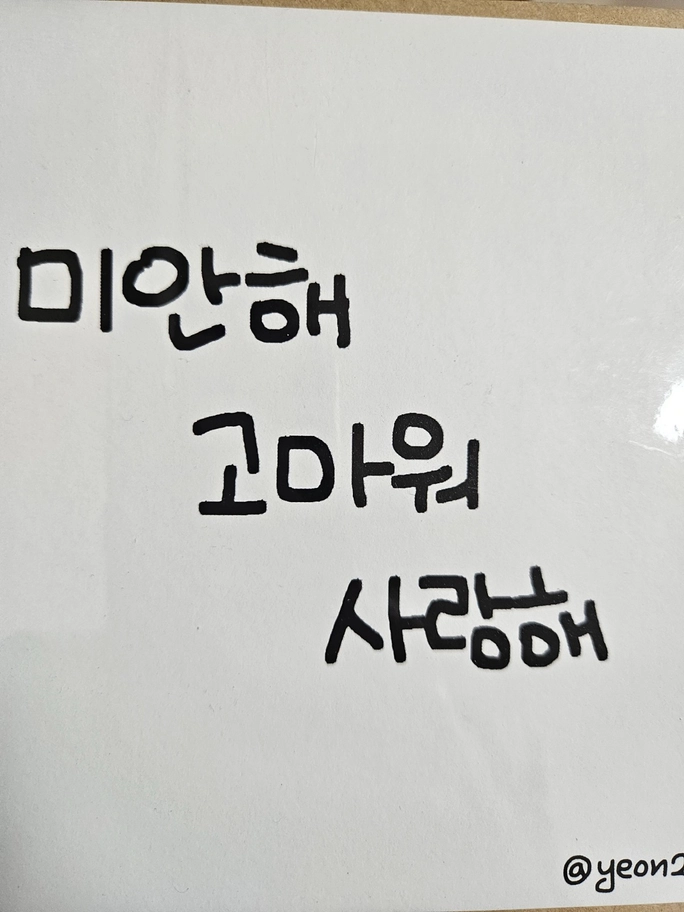 미안해
고마워
사랑해
@yeon2